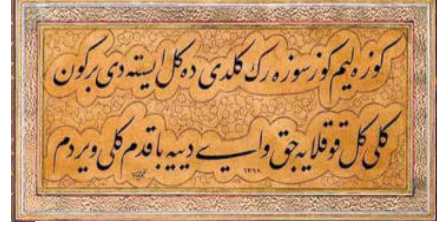 کوزه لیم کوز سوزه رک کلدی ده کل ایسته دی بر کون
کلی کل قوقلایه جق وای دییه باقدم کلی ویردم